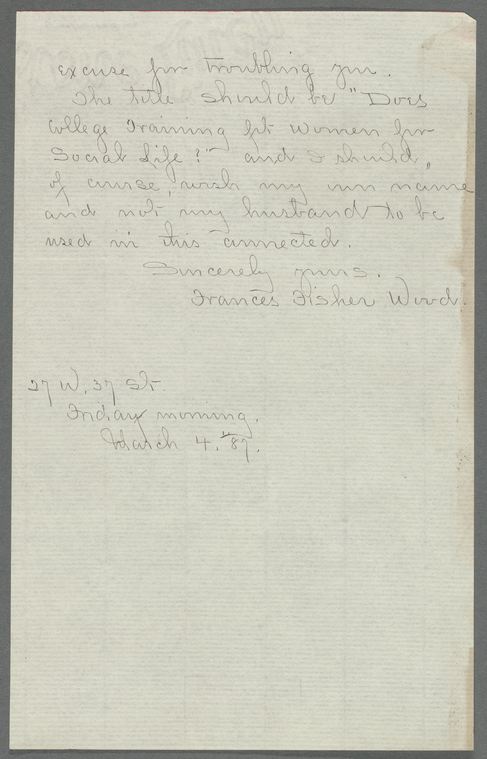 excuse for troubling you.
The title should be "Does
College Training fit Women for
Social Life?" and I should,
of course, wish my own name
and not my husband to be
used in this connected.
Sincerely yours.
Frances Fisher Wood.
27 W. 37 St.
Friday morning.
March 4. '87.